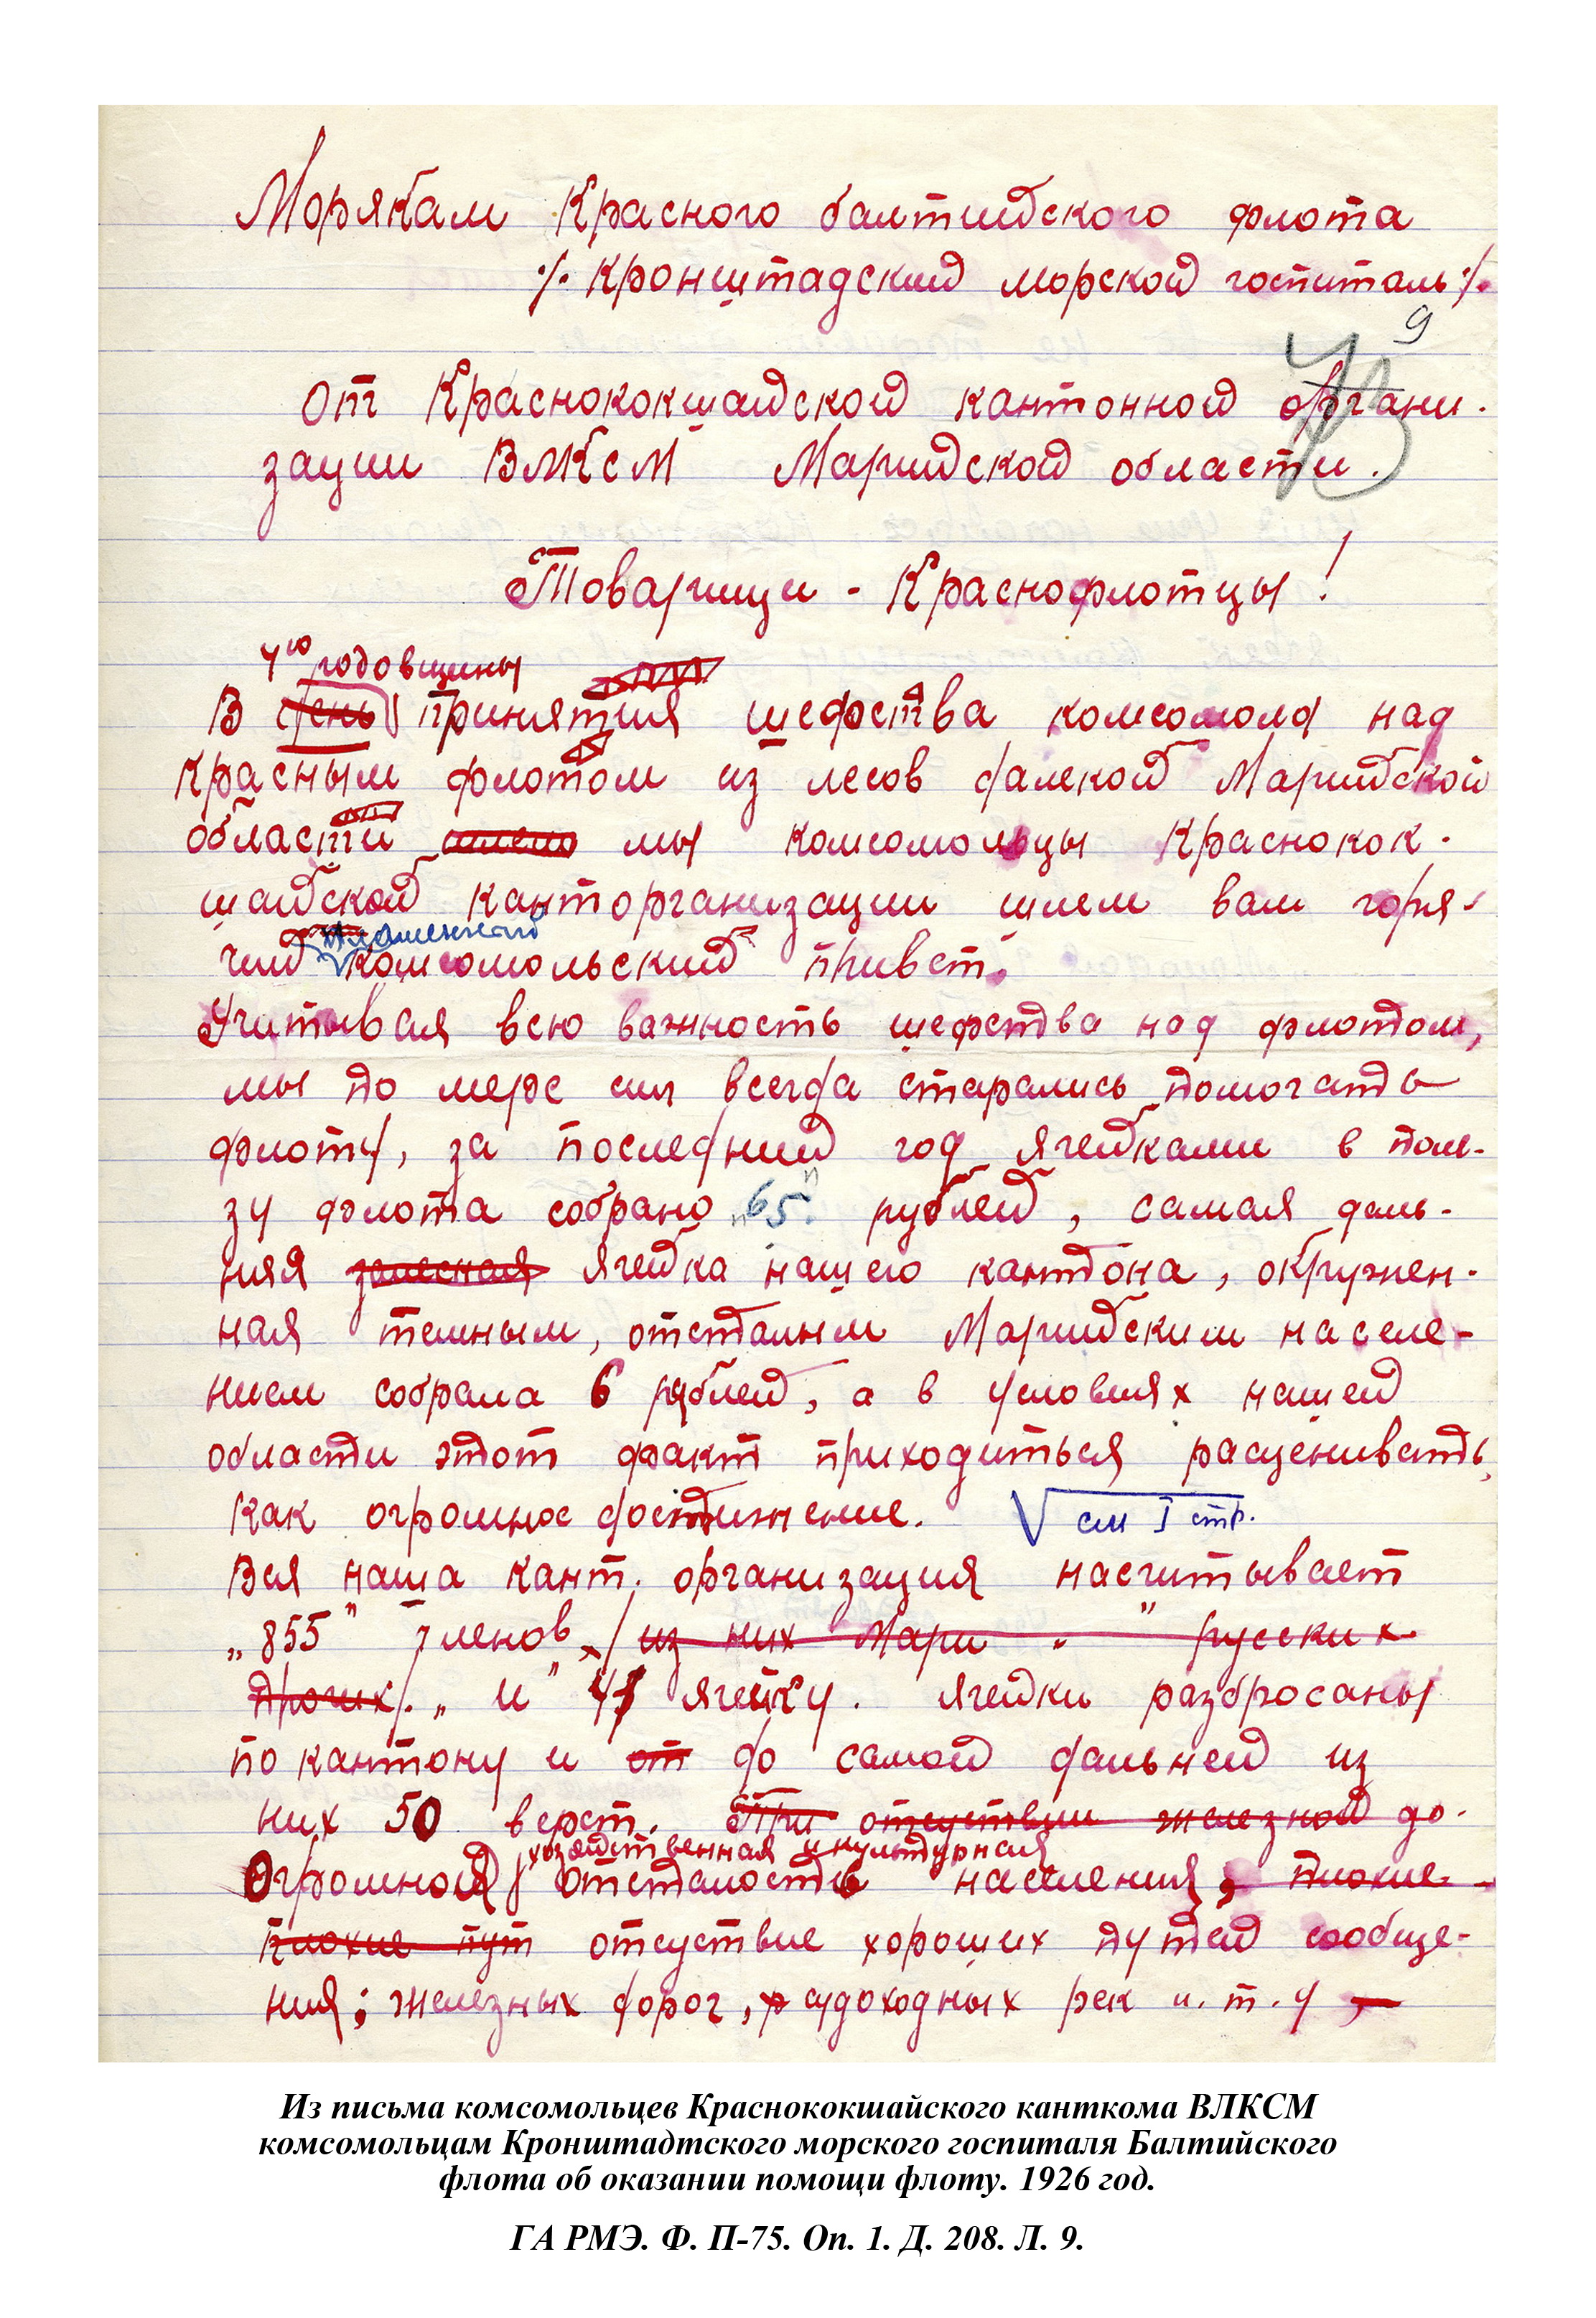 Морякам Красного балтийского флота
·/· Кронштадский морской госпиталь ·/·
9
От Краснококшайской кантонной органи-
зации ВЛКСМ Марийской области.
Товарищи - Краснофлотцы!
4ую годовщины
В день принятия шефства комсомола над
Красным флотом из лесов далекой Марийской
области мы комсомольцы Краснокок-
шайской канторганизации шлем вам горя-
пламенный
чий комсомольский привет.
Учитывая всю важность шефства над флотом,
мы по мере сил всегда старались помогать
флоту, за последний год ячейками в поль-
зу флота собрано „65" рублей, самая даль-
няя залесная ячейка нашего кантона, окружен-
ная темным, отсталым Марийским населе-
нием собрала 6 рублей, а в условиях нашей
области этот факт приходиться расценивать
как огромное достижение. √ см I стр.
Вся наша кант. организация насчитывает
„855" членов / из них Мари " русских
прочих/. „ и " 41 ячейку. Ячейки разбросаны
по кантону и от до самой дальней из
них 50 верст. При отсутствии железной до-
хозяйственная и культурная
Огромной отсталость населения, плохие
плохие пут отсуствие хороших путей сообще-
ния; железных дорог, судоходных рек и.т.д
Из письма комсомольцев Краснококшайского канткома ВЛКСМ
комсомольцам Кронштадтского морского госпиталя Балтийского
флота об оказании помощи флоту. 1926 год.
ГА РМЭ. Ф. П-75. Оп. 1. Д. 208. Л. 9.